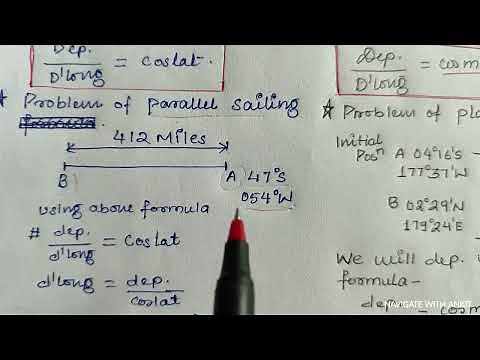 Dep.
D'Long = cos lat.
* Problem of parallel sailing
412 Miles
B A 47°S
054°W
using above formula
# dep. = cos lat
d'long
d'long = dep.
cos lat
Dep.
D'Long = cos m
* Problem of pla
Initial
Posⁿ A 04°16's
177°37'W
B 02°29'N
179°24'E
We will dep.
formula -
dep. cosm
NAVIGATE WITH ANKIT